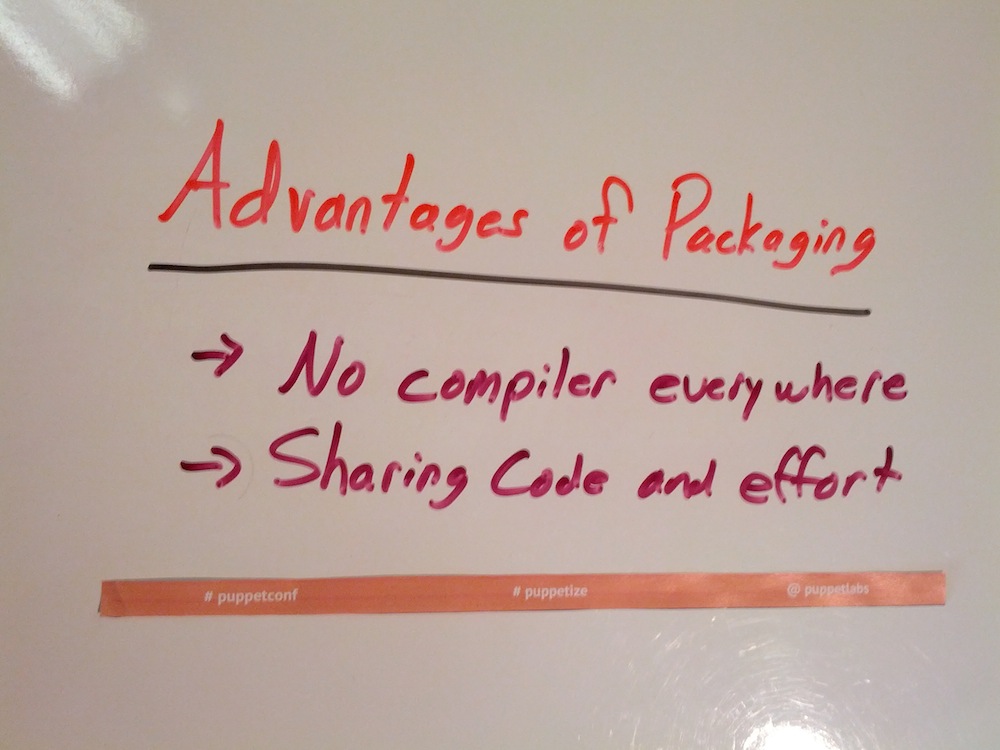 Advantages of Packaging
→ No compiler everywhere
→ Sharing Code and effort
# puppetconf # puppetize @ puppetlabs